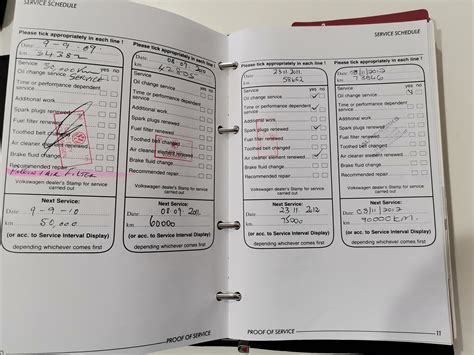 SERVICE SCHEDULE
Please tick appropriately in each line !
Date 9-9-09
km 34282
Service yes no
Oil change service
SERVICE
Time or performance dependent service
Additional work
Spark plugs renewed
Fuel filter renewed
Toothed belt changed
Air cleaner element renewed
Brake fluid change
Recommended repair
POLLEN FILTER
Volkswagen dealer's Stamp for service carried out
Next Service:
Date 9-9-10
km 50,000
(or acc. to Service Interval Display)
depending whichever comes first
Please tick appropriately in each line !
Date
km 42805
Service yes no
Oil change service
Time or performance dependent service
Additional work
Spark plugs renewed
Fuel filter renewed
Toothed belt changed
Air cleaner element renewed
Brake fluid change
Recommended repair
Volkswagen dealer's Stamp for service carried out
Next Service:
Date 08.09.2011
km 60000
(or acc. to Service Interval Display)
depending whichever comes first
PROOF OF SERVICE
SERVICE SCHEDULE
Please tick appropriately in each line !
Date 23 11 2011
km 58662
Service yes no
Oil change service
Time or performance dependent service
Additional work
Spark plugs renewed
Fuel filter renewed
Toothed belt changed
Air cleaner element renewed
Brake fluid change
Recommended repair
Volkswagen dealer's Stamp for service carried out
Next Service:
Date 23 11 2012
km 75000
(or acc. to Service Interval Display)
depending whichever comes first
Please tick appropriately in each line !
Date 08/11/2012
km
Service yes no
Oil change service
Time or performance dependent service
Additional work
Spark plugs renewed
Fuel filter renewed
Toothed belt changed
Air cleaner element renewed
Brake fluid change
Recommended repair
Volkswagen dealer's Stamp for service carried out
Next Service:
Date
km 90000km.
(or acc. to Service Interval Display)
depending whichever comes first
PROOF OF SERVICE
11